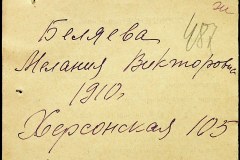 Беляева
Мелания Викторовна
1910г
Херсонская 105